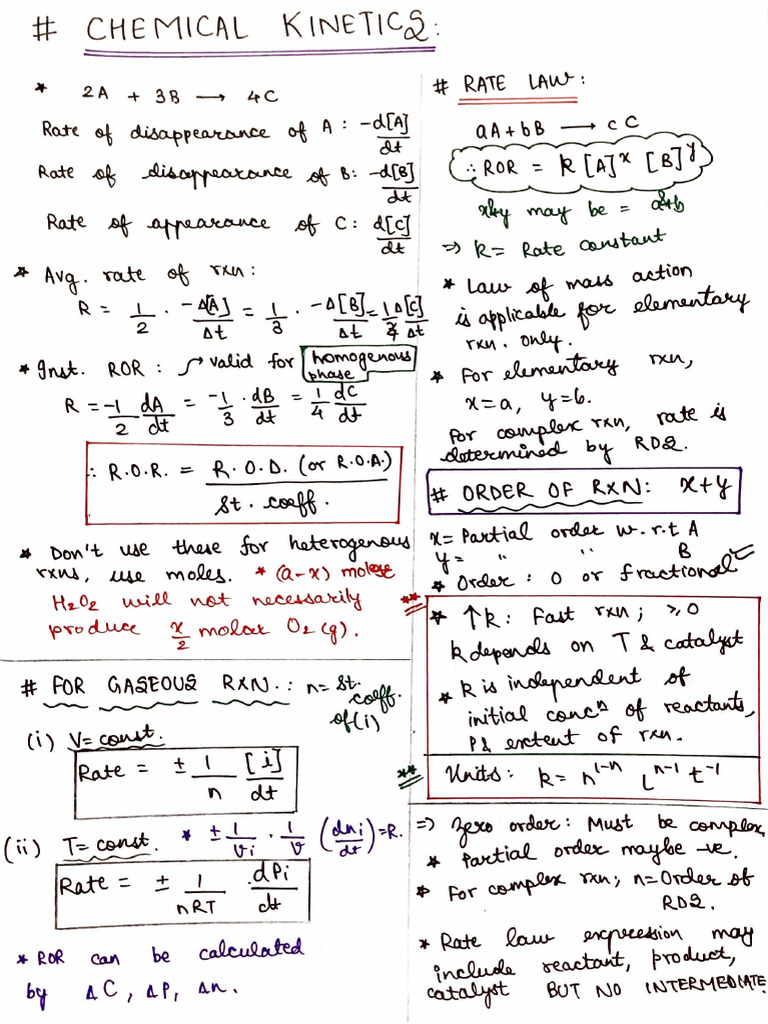 # CHEMICAL KINETICS:
* 2A + 3B ⟶ 4C
Rate of disappearance of A: -d[A]/dt
Rate of disappearance of B: -d[B]/dt
Rate of appearance of C: d[C]/dt
* Avg. rate of rxn:
R = 1/2 · -Δ[A]/Δt = 1/3 · -Δ[B]/Δt = 1/4 Δ[C]/Δt
* Inst. ROR: → valid for homogenous phase
R = -1/2 dA/dt = -1/3 · dB/dt = 1/4 dC/dt
∴ R.O.R. = R.O.D. (or R.O.A.)/St. coeff.
* Don't use these for heterogenous
rxns, use moles. * (a-x) molose
H2O2 will not necessarily
produce x/2 molar O2 (g).
# FOR GASEOUS RXN.: n= St. coeff. of (i)
(i) V= const.
Rate = ± 1/n [i]/dt
(ii) T= const. * ± 1/νi · 1/V (dni/dt) = R.
Rate = ± 1/nRT · dPi/dt
* ROR can be calculated
by ΔC, ΔP, Δn.
# RATE LAW:
aA + bB ⟶ cC
∴ ROR = k [A]^x [B]^y
x&y may be = a&b
⇒ k= Rate constant
* Law of mass action
is applicable for elementary
rxn. only.
* For elementary rxn,
x=a, y=b.
For complex rxn, rate is
determined by RDS.
# ORDER OF RXN: x+y
x= Partial order w.r.t A
y= " " B
* Order: 0 or fractional ✓
** * ↑k: Fast rxn; ≥0
k depends on T & catalyst
* k is independent of
initial concⁿ of reactants,
P & extent of rxn.
** Units: k = n^1-n L^n-1 t^-1
⇒ Zero order: Must be complex
* Partial order maybe -ve.
* For complex rxn; n=Order of
RDS.
* Rate law expression may
include reactant, product,
catalyst BUT NO INTERMEDIATE.